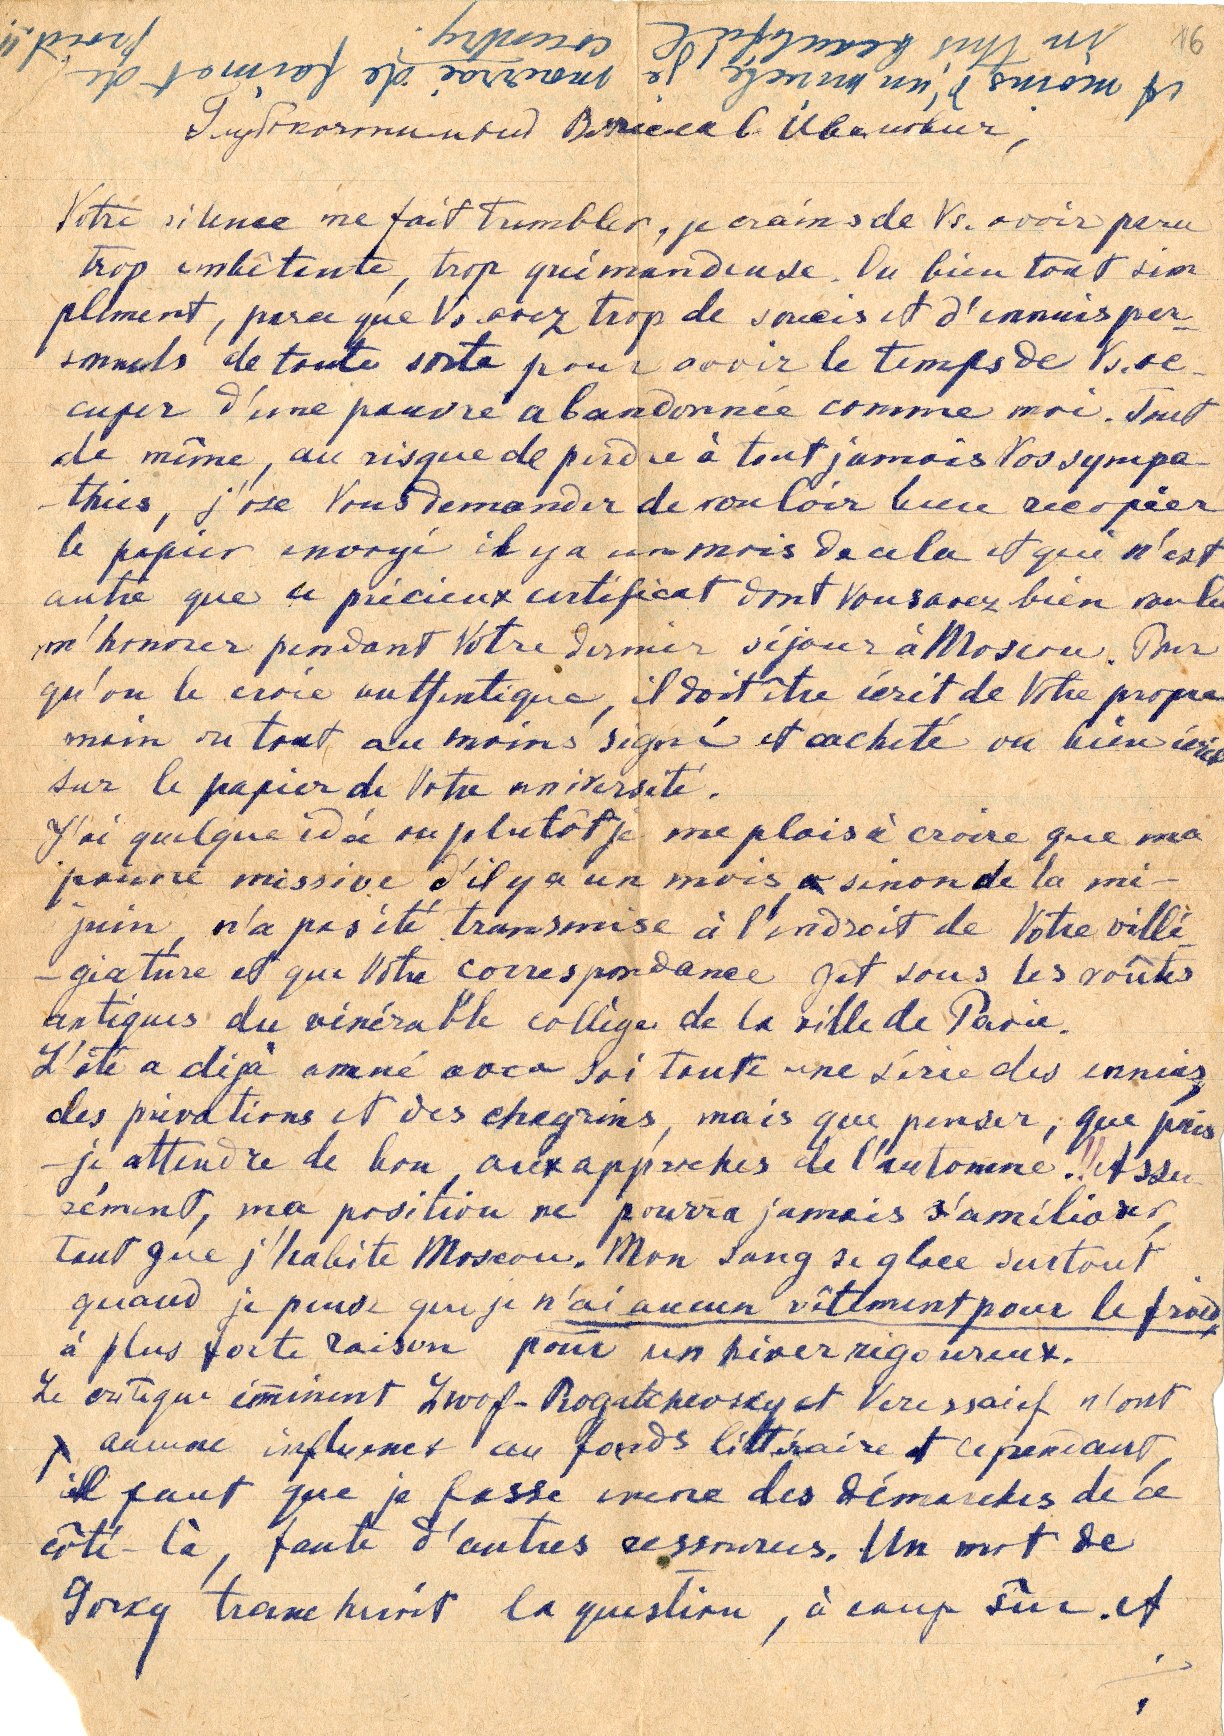 16
A moins d'un miracle je mourrai de faim et de froid!!
in this beautiful country!
Глубокочтимый Вячеслав Иванович,
Votre silence me fait trembler, je crains de Vs. avoir paru
trop embêtante, trop quémandeuse. Ou bien tout sim
plement, parce que Vs. avez trop de soucis et d'ennuis per-
sonnels de toute sorte pour avoir le temps de Vs. oc-
cuper d'une pauvre abandonnée comme moi. Tout
de même, au risque de perdre à tout jamais Vos sympa-
-thies, j'ose Vous demander de vouloir bien recopier
le papier envoyé il y a un mois de cela et qui n'est
autre que ce précieux certificat dont Vous avez bien voulu
m'honorer pendant Votre dernier séjour à Moscou. Pour
qu'on le croie authentique, il doit être écrit de Votre propre
main ou tout au moins signé et cacheté ou bien écrit
sur le papier de Votre université.
J'ai quelque idée ou plutôt je me plais à croire que ma
pauvre missive d'il y a un mois, sinon de la mi-
juin, n'a pas été transmise à l'endroit de Votre villé-
-giature et que Votre correspondance gît sous les voûtes
antiques du vénérable collège de la ville de Pavie.
L'été a déjà amené avec soi toute une série des ennuis,
des privations et des chagrins, mais que penser, que puis
-je attendre de bon aux approches de l'automne..!! Assu-
rément, ma position ne pourra jamais s'améliorer,
tant que j'habite Moscou. Mon sang se glace surtout
quand je pense que je n'ai aucun vêtement pour le froid,
à plus forte raison pour un hiver rigoureux.
Le critique éminent Lvof-Rogatchevsky et Veressaief n'ont
aucune influence au fonds littéraire et cependant,
il faut que je fasse encore des démarches de ce
côté-là, faute d'autres ressources. Un mot de
Gorky trancheroit la question, à coup sûr. Et